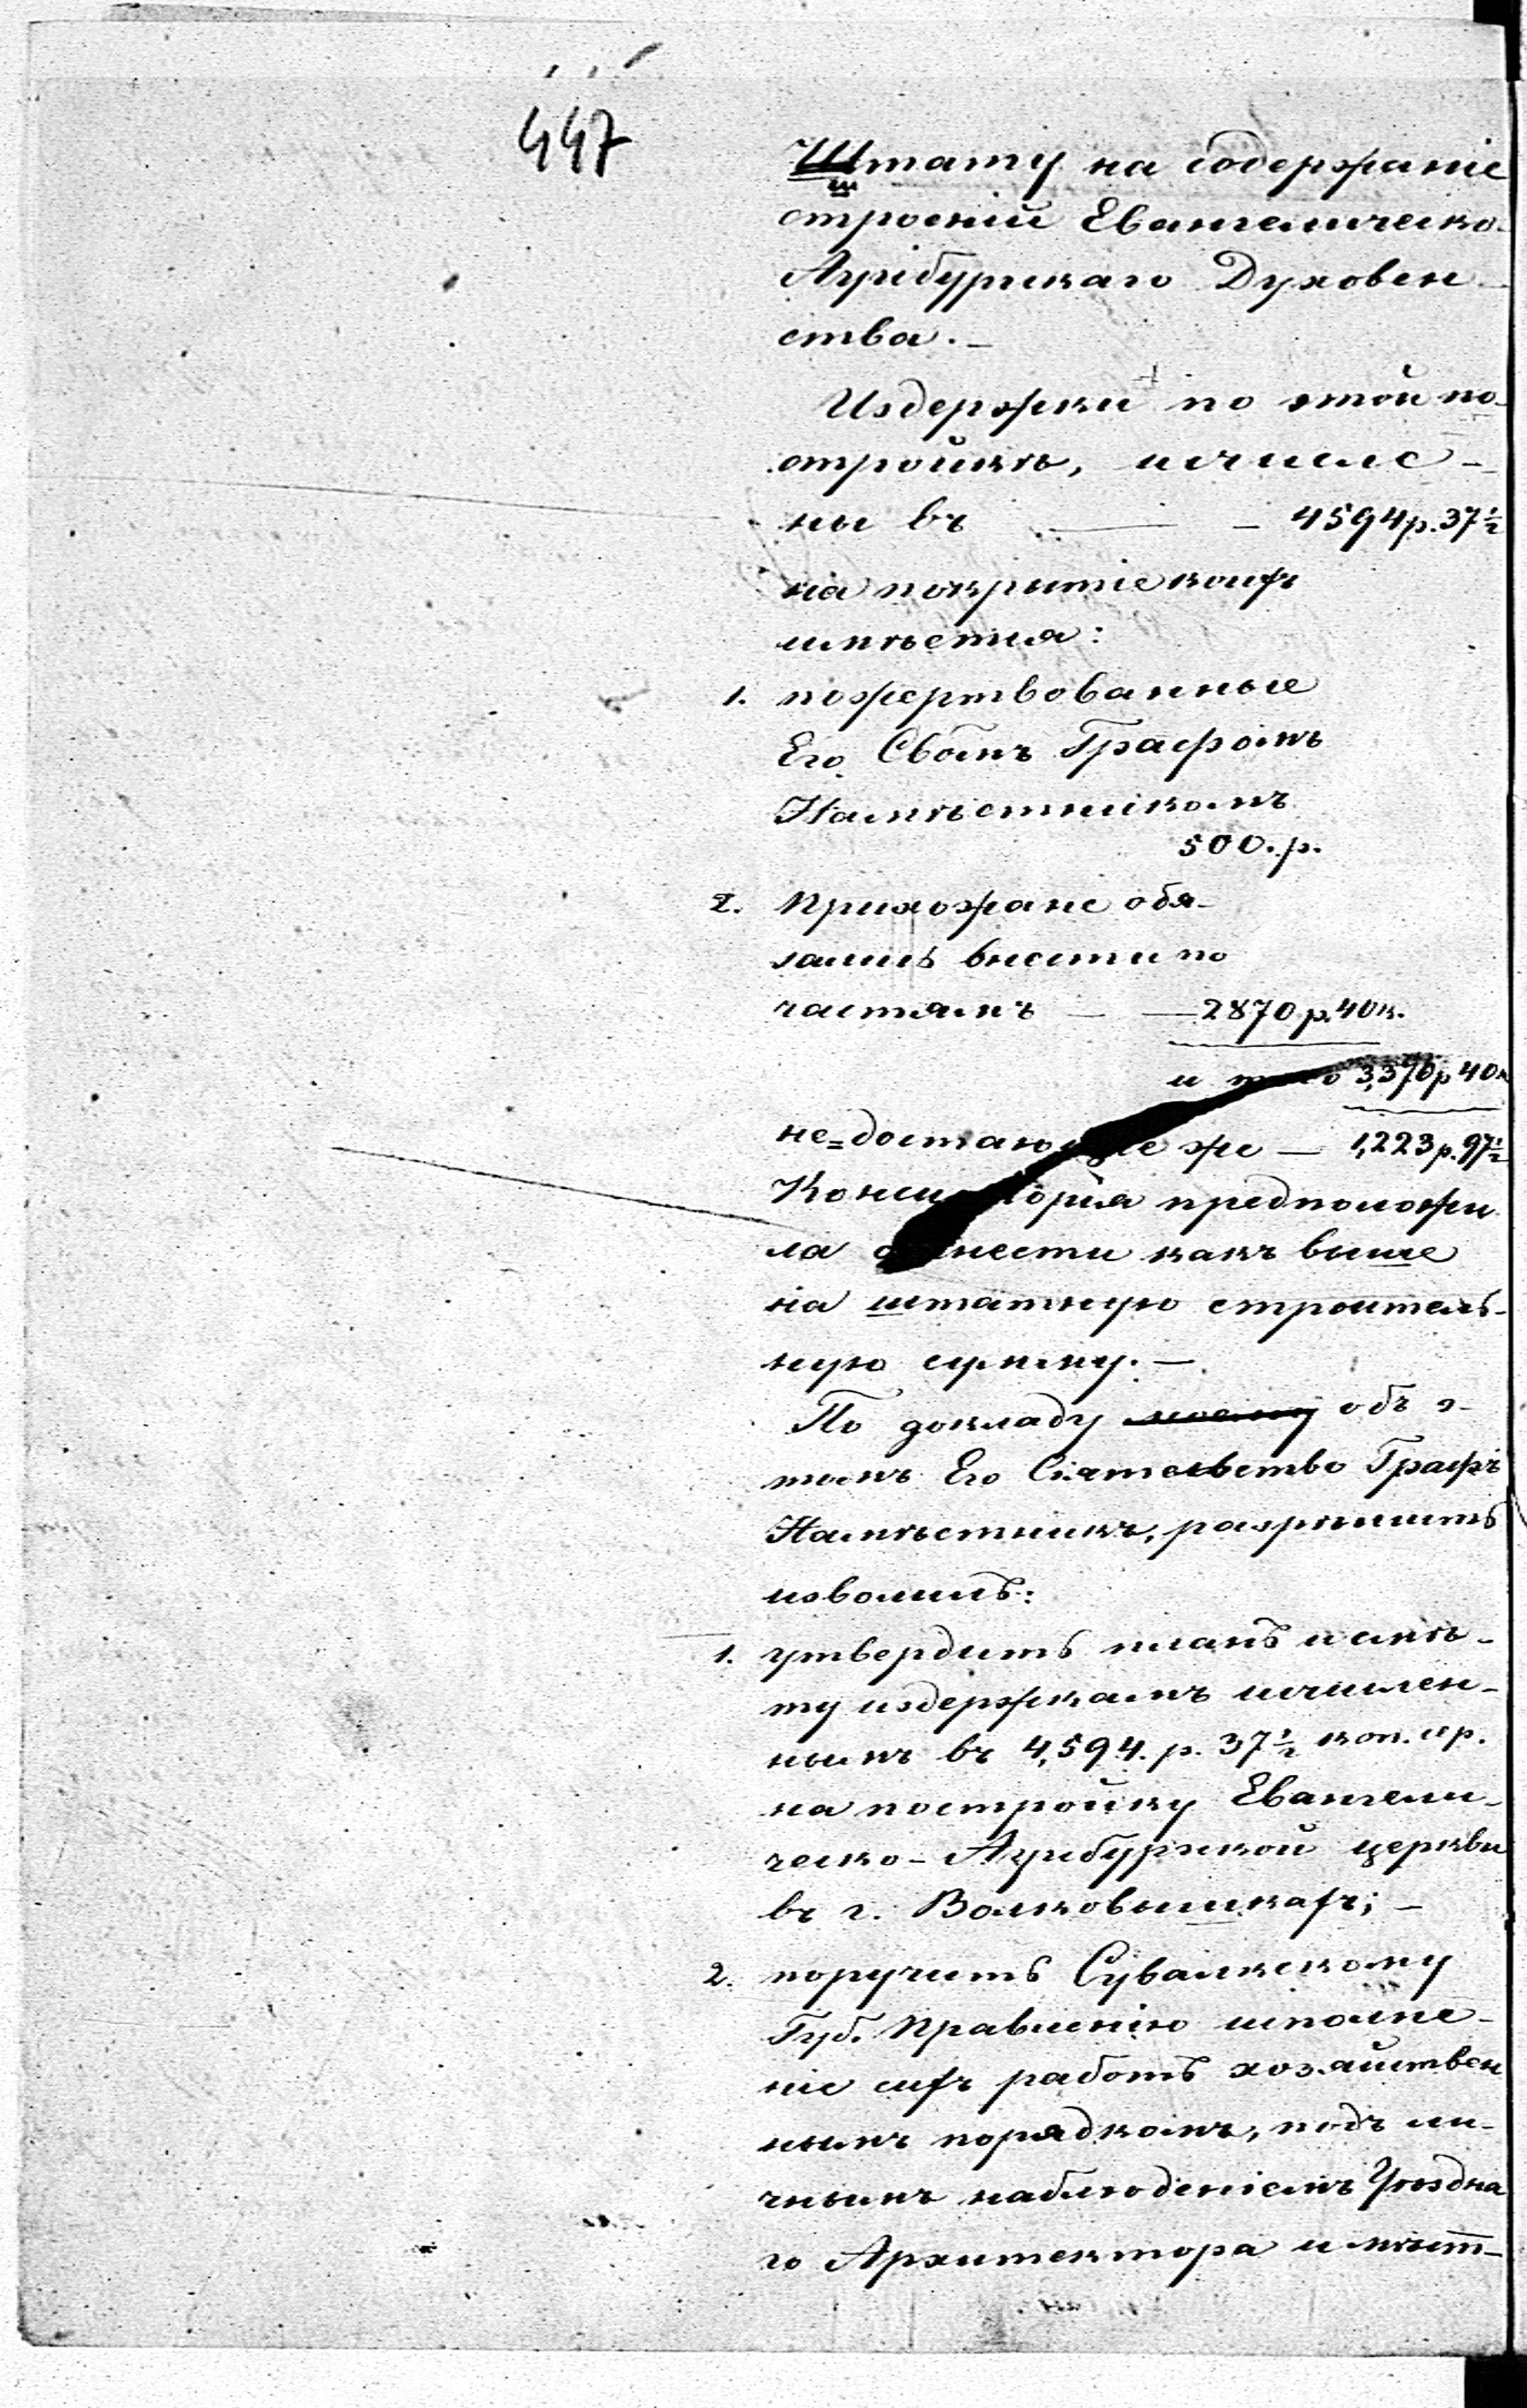 447
Штату на содержаніе
строеній Евангелическо-
Аугсбургскаго Духовен-
ства. —
Издержки по этой по-
стройкѣ, исчисле-
ны въ — 4594 р. 37½
на покрытіе коихъ
имѣется:
1. пожертвованные
Его Свомъ Графомъ
Намѣстникомъ
500. р.
2. Прихожане обя-
зались внести по
частямъ — 2870 р. 40 к.
и того 3,370 р 40 к
не=достающіе же — 1,223 р. 97½
Консисторія предположи
ла отнести какъ выше
на штатную строитель-
ную сумму. —
По докладу моему объ э-
томъ Его Сіятельство Графъ
Намѣстникъ, разрѣшить
изволилъ:
1. утвердить планъ и смѣ-
ту издержкамъ исчислен-
нымъ въ 4,594. р. 37½ коп. сер.
на постройку Евангели-
ческо-Аугсбургской церкви
въ г. Волковышкахъ; —
2. поручить Сувалкскому
Губ. Правленію исполне-
ніе сихъ работъ хозяйствен
нымъ порядкомъ, подъ ли-
чнымъ наблюденіемъ Уѣздна
го Архитектора и мѣст-